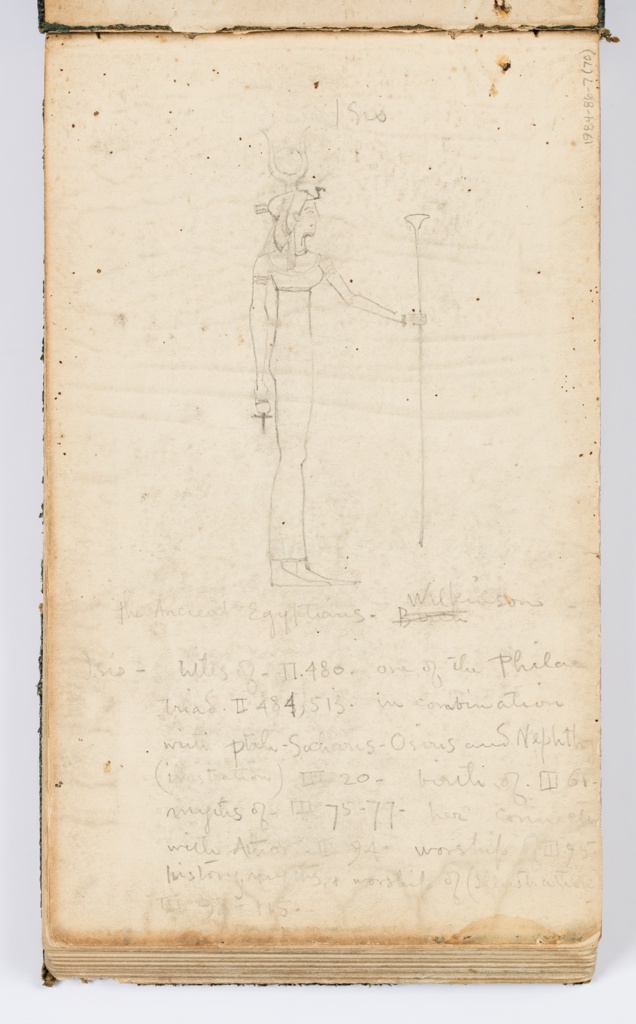 1984-86-7(70)
Isis
the Ancient Egyptians - Wilkinson
Isis - titles of - II. 480. one of the Philae
triad. II 484, 513. in combination
with ptah-Socharis-Osiris and Nephth
(illustration) III 20 - birth of. III 61.
myths of - III 75-77 - her connect
with III 94. worship of III 95
history, myths, & worship of (illustration
III 115.